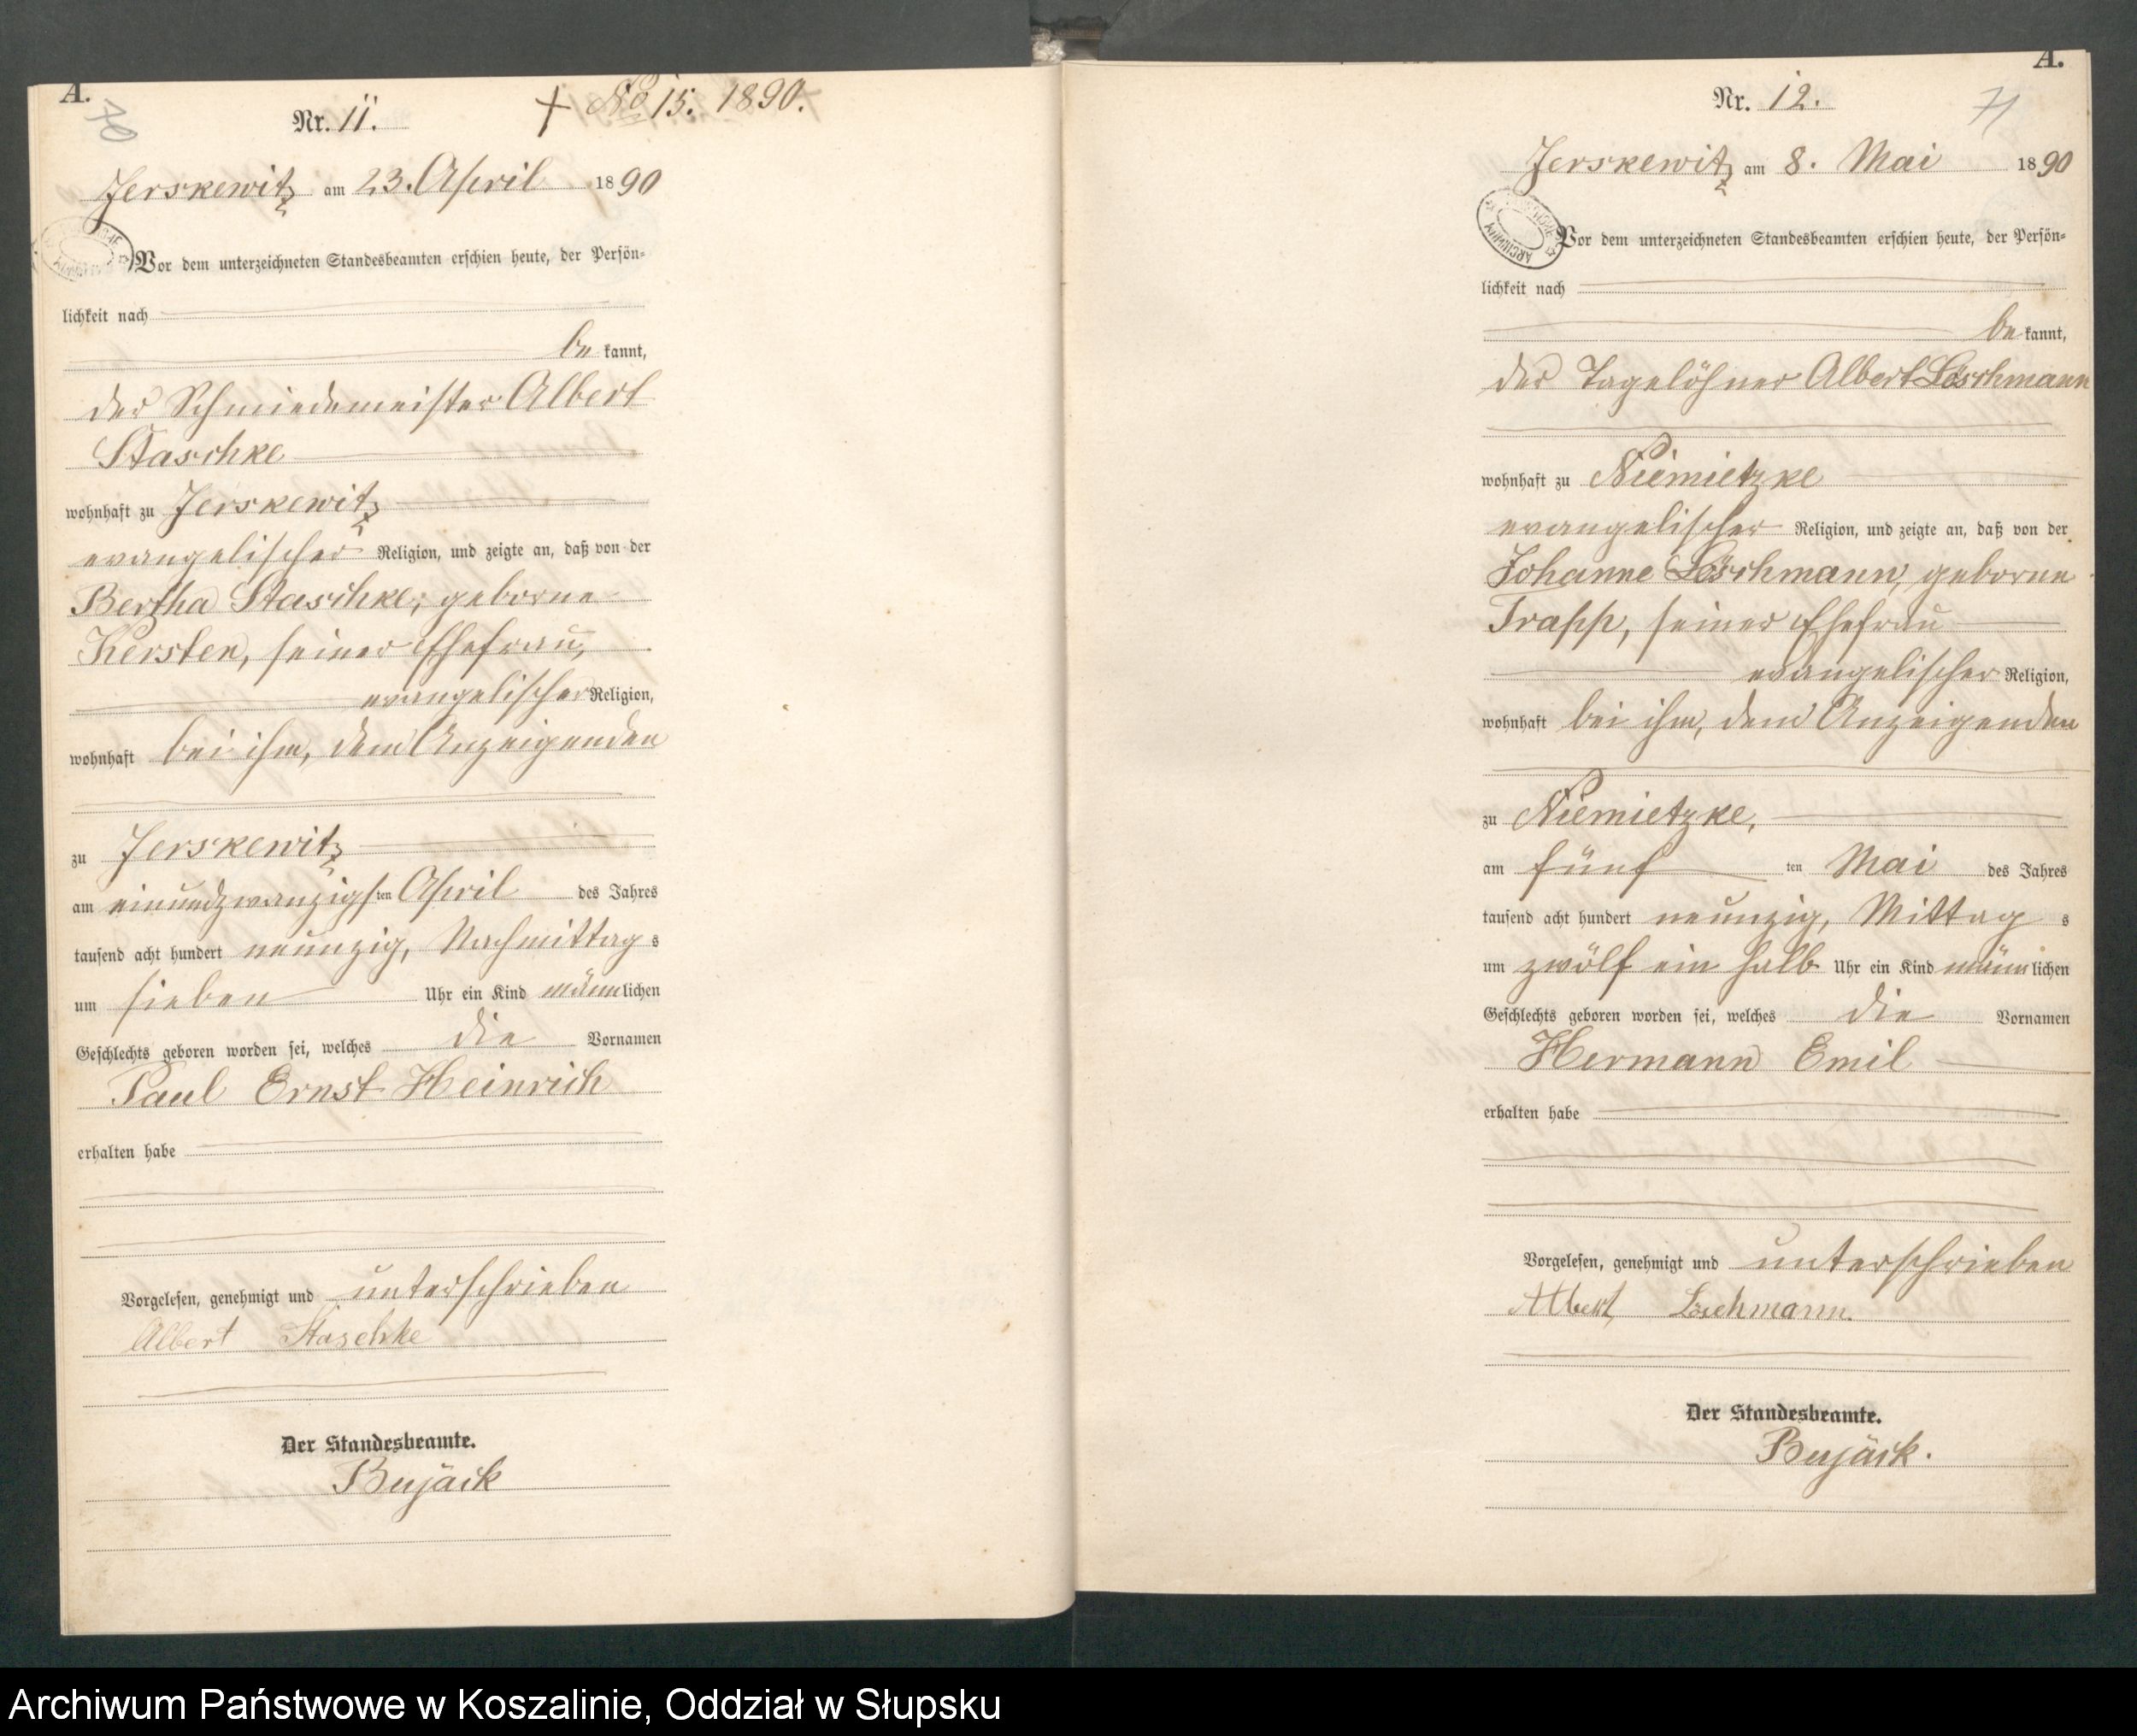 A.
70
Nr. 11.
+ No 15. 1890.
Jerskewitz am 23. April 1890
Vor dem unterzeichneten Standesbeamten erschien heute, der Persön-
lichkeit nach
be kannt,
der Schmiedemeister Albert
Staschke
wohnhaft zu Jerskewitz
evangelischer Religion, und zeigte an, daß von der
Bertha Staschke, geborne
Kersten, seiner Ehefrau,
evangelischer Religion,
wohnhaft bei ihm, dem Anzeigenden
zu Jerskewitz
am einundzwanzigsten April des Jahres
tausend acht hundert neunzig, Nachmittag s
um sieben Uhr ein Kind männlichen
Geschlechts geboren worden sei, welches die Vornamen
Paul Ernst Heinrich
erhalten habe
Vorgelesen, genehmigt und unterschrieben
Albert Staschke
Der Standesbeamte.
Bujäck
A.
71
Nr. 12.
Jerskewitz am 8. Mai 1890
Vor dem unterzeichneten Standesbeamten erschien heute, der Persön-
lichkeit nach
be kannt,
der Tagelöhner Albert Löschmann
wohnhaft zu Niemietzke
evangelischer Religion, und zeigte an, daß von der
Johanne Löschmann, geborne
Trapp, seiner Ehefrau
evangelischer Religion,
wohnhaft bei ihm, dem Anzeigenden
zu Niemietzke,
am fünf ten Mai des Jahres
tausend acht hundert neunzig, Mittag s
um zwölf ein halb Uhr ein Kind männlichen
Geschlechts geboren worden sei, welches die Vornamen
Hermann Emil
erhalten habe
Vorgelesen, genehmigt und unterschrieben
Albert Löschmann.
Der Standesbeamte.
Bujäck.
Archiwum Państwowe w Koszalinie, Oddział w Słupsku